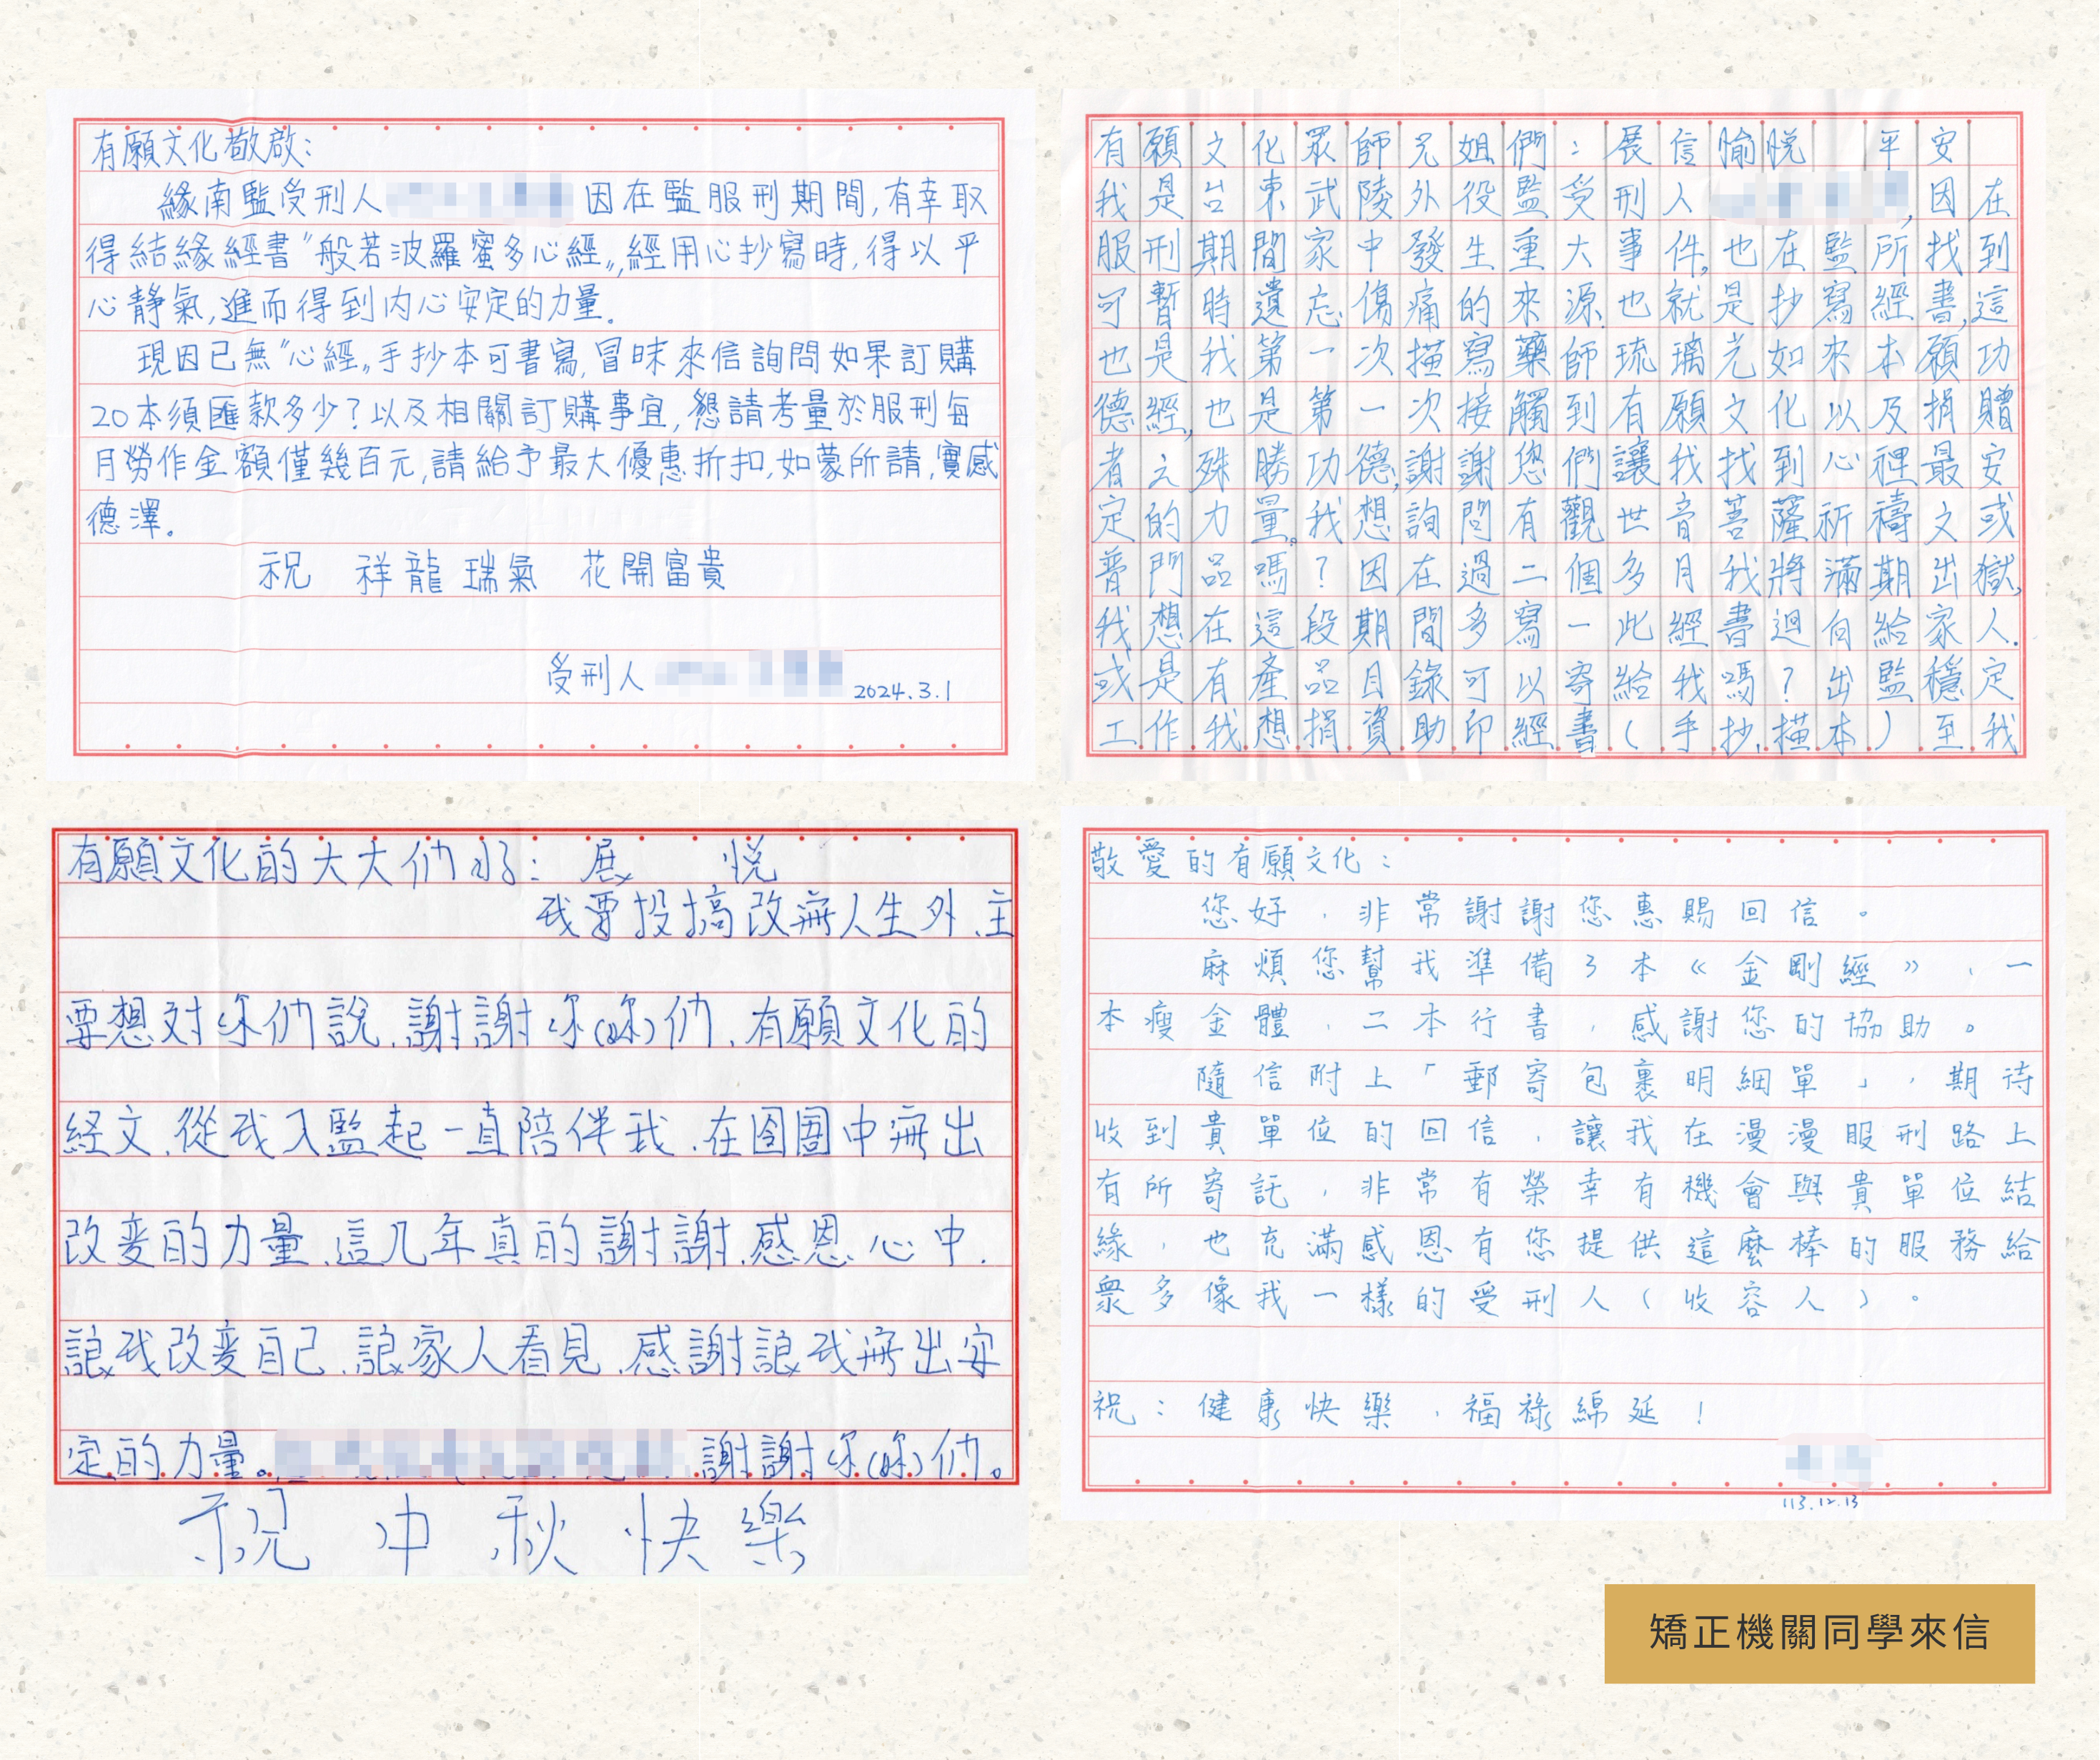 有願文化敬啟：
緣南監受刑人 因在監服刑期間,有幸取
得結緣經書"般若波羅蜜多心經",經用心抄寫時,得以平
心靜氣,進而得到內心安定的力量。
現因已無"心經"手抄本可書寫,冒昧來信詢問如果訂購
20本須匯款多少？以及相關訂購事宜,懇請考量於服刑每
月勞作金額僅幾百元,請給予最大優惠折扣,如蒙所請,實感
德澤。
祝 祥龍瑞氣 花開富貴
受刑人 2024.3.1
有願文化眾師兄姐們：展信愉悅 平安
我是台東武陵外役監受刑人 ,因在
服刑期間家中發生重大事件,也在監所找到
可暫時遺忘傷痛的來源.也就是抄寫經書,這
也是我第一次描寫藥師琉璃光如來本願功
德經,也是第一次接觸到有願文化以及捐贈
者之殊勝功德,謝謝您們讓我找到心裡最安
定的力量。我想詢問有觀世音菩薩祈禱文或
普門品嗎？因在過二個多月我將滿期出獄,
我想在這段期間多寫一此經書迴向給家人.
或是有產品目錄可以寄給我嗎？出監穩定
工作我想捐資助印經書(手抄.描本)至我
有願文化的大大们好：展 悅
我要投搞改無人生外、主
要想对你们說.謝謝你(妳)们.有願文化的
経文.從我入監起一直陪伴我.在囹圄中無出
改变的力量.這几年真的謝謝.感恩心中.
讓我改变自己.讓家人看見.感謝讓我無出安
定的力量。 謝謝你(妳)们。
祝 中秋快樂
敬愛的有願文化：
您好，非常謝謝您惠賜回信。
麻煩您幫我準備3本《金剛經》，一
本瘦金體，二本行書，感謝您的協助。
隨信附上「郵寄包裹明細單」，期待
收到貴單位的回信，讓我在漫漫服刑路上
有所寄託，非常有榮幸有機會與貴單位結
緣，也充滿感恩有您提供這麼棒的服務給
眾多像我一樣的受刑人(收容人)。
祝：健康快樂，福祿綿延！
113.12.13
矯正機關同學來信